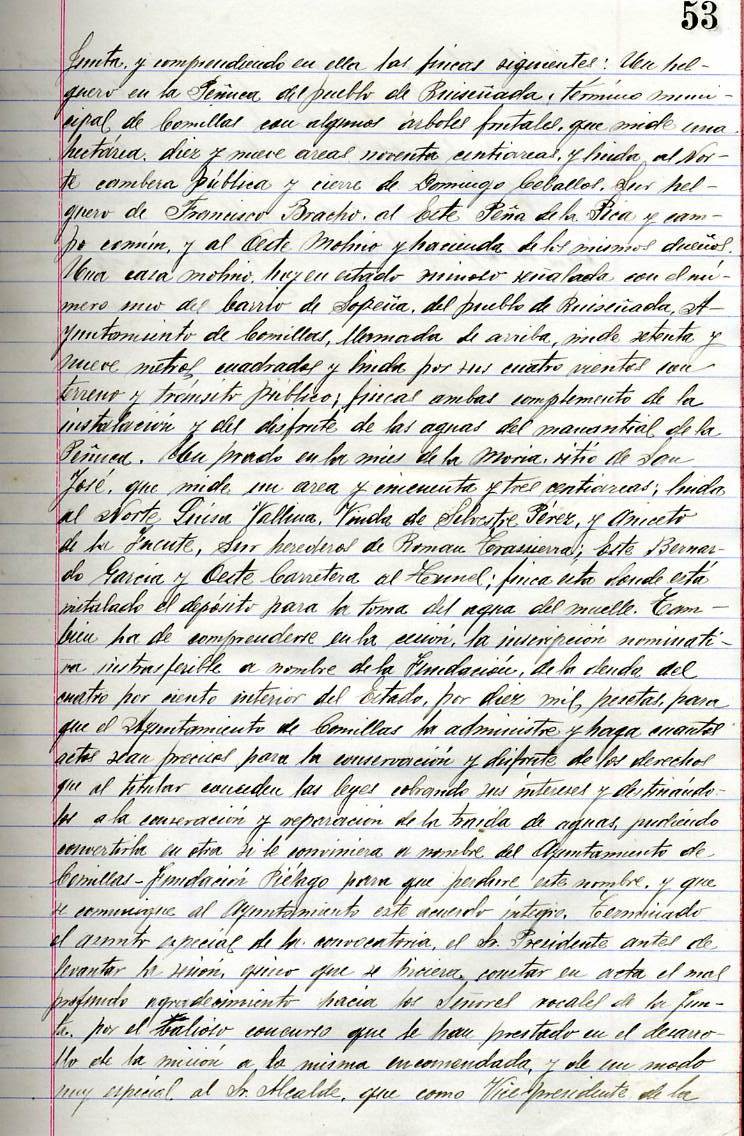 53
Junta, y comprendiendo en ella las fincas siguientes: Un hel-
guero en la Peñuca del pueblo de Ruiseñada, término muni-
cipal de Comillas con algunos árboles frutales, que mide una
hectárea, diez y nueve areas noventa centiareas, y linda al Nor-
te cambera pública y cierre de Domingo Ceballos, Sur hel-
guero de Francisco Bracho, al Este Peña de la Pica y cam-
po común, y al Oeste Molino y hacienda de los mismos dueños.
Una casa molino, hoy en estado ruinoso señalada con el nú-
mero uno del barrio de Sopeña, del pueblo de Ruiseñada, A-
yuntamiento de Comillas, llamada de arriba, mide setenta y
nueve metros cuadrados y linda por sus cuatro vientos con
terreno y tránsito público; fincas ambas complemento de la
instalación y del disfrute de las aguas del manantial de la
Peñuca. Un prado en la mies de la Moria, sitio de San
José, que mide un area y cincuenta y tres centiareas; linda
al Norte Luisa Vallina, Viuda de Silvestre Pérez, y Aniceto
de la Fuente, Sur herederos de Roman Trassierra; Este Bernar-
do García y Oeste Carretera al Tunel; finca ésta donde está
instalado el depósito para la toma del agua del muelle. Tam-
bien ha de comprenderse en la cesión, la inscripción nominati-
va instrasferible a nombre de la Fundación, de la deuda del
cuatro por ciento interior del Estado, por diez mil pesetas, para
que el Ayuntamiento de Comillas la administre y haga cuantos
actos sean precisos para la conservación y disfrute de los derechos
que al titular conceden las leyes cobrando sus intereses y destinándo-
los a la conservación y reparación de la traida de aguas, pudiendo
convertirla en otra si le conviniera a nombre del Ayuntamiento de
Comillas-Fundación Piélago para que perdure este nombre, y que
se comunique al Ayuntamiento este acuerdo íntegro. Terminado
el asunto especial de la convocatoria, el Sr. Presidente antes de
levantar la sesión, quiso que se hiciera constar en acta el mas
profundo agradecimiento hacia los Señores vocales de la Jun-
ta, por el valioso concurso que le han prestado en el desarro-
llo de la misión a la misma encomendada, y de un modo
muy especial al Sr. Alcalde, que como Vice-presidente de la